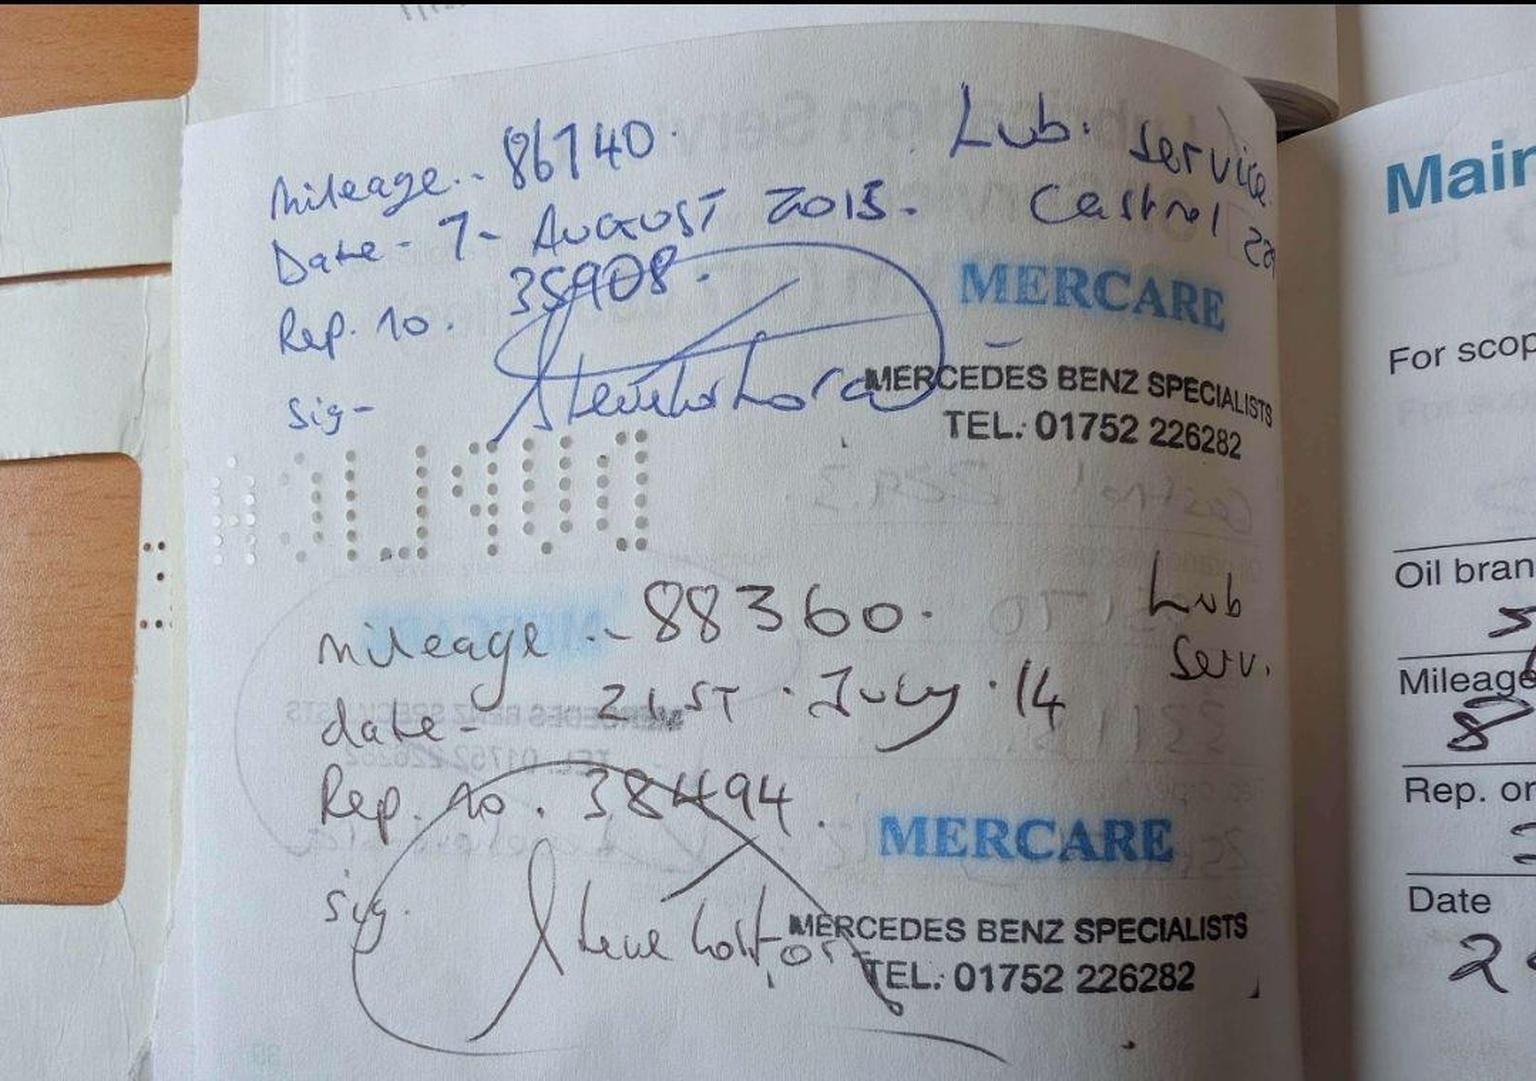 Mileage.. 86740.
Lub. Service
Date - 7 - AUGUST 2015.
Castrol
Rep. no. 35908.
MERCARE
MERCEDES BENZ SPECIALISTS
TEL: 01752 226282
sig-
mileage .. 88360.
Lub
Serv.
date - 21ST. July. 14
Rep. no. 38494.
MERCARE
sig.
MERCEDES BENZ SPECIALISTS
TEL: 01752 226282
Main
For scop
Oil bran
Mileage
Rep. or
Date